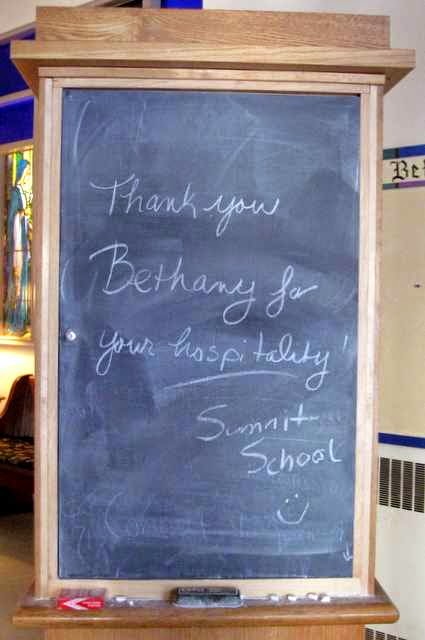 Thank you
Bethany for
your hospitality!
Summit
School
Be